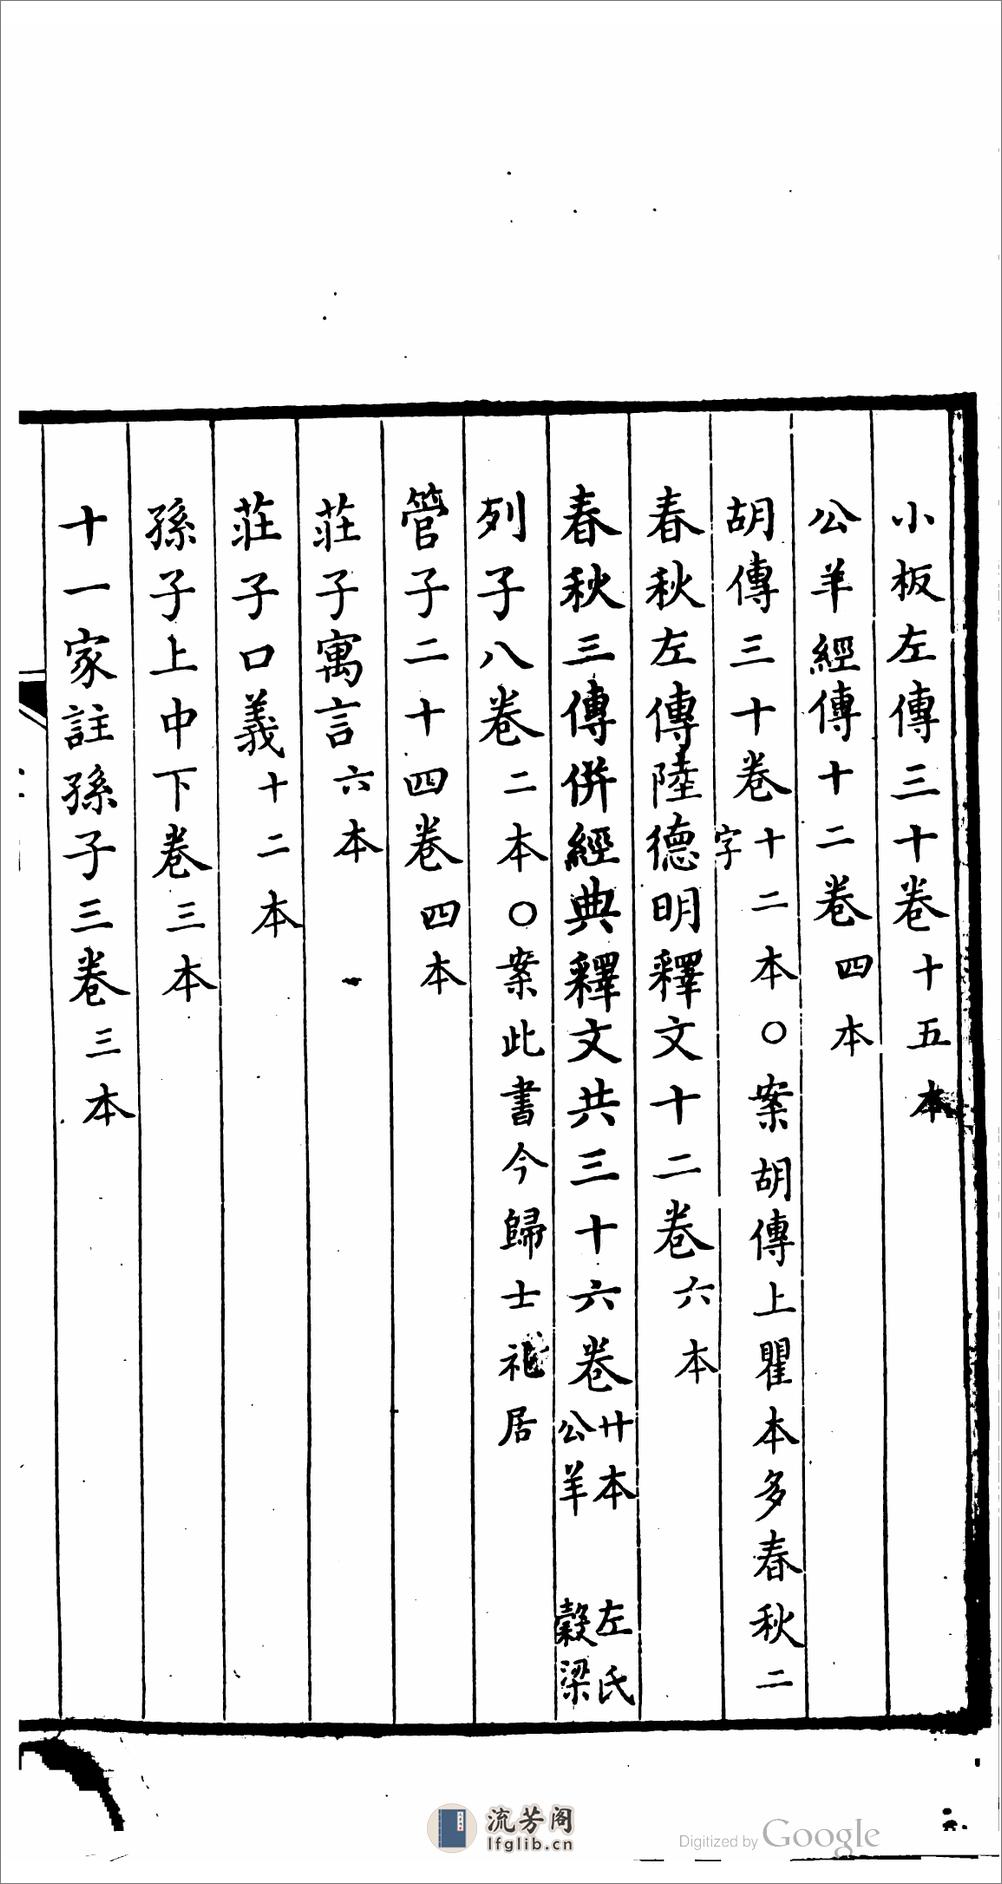 小板左傳三十卷十五本
公羊經傳十二卷四本
胡傳三十卷十二本〇案胡傳上瞿本多春秋二字
春秋左傳陸德明釋文十二卷六本
春秋三傳併經典釋文共三十六卷廿本 左氏公羊 穀梁
列子八卷二本〇案此書今歸士禮居
管子二十四卷四本
莊子寓言六本
莊子口義十二本
孫子上中下卷三本
十一家註孫子三卷三本
流芳阁
lfglib.cn
Digitized by Google